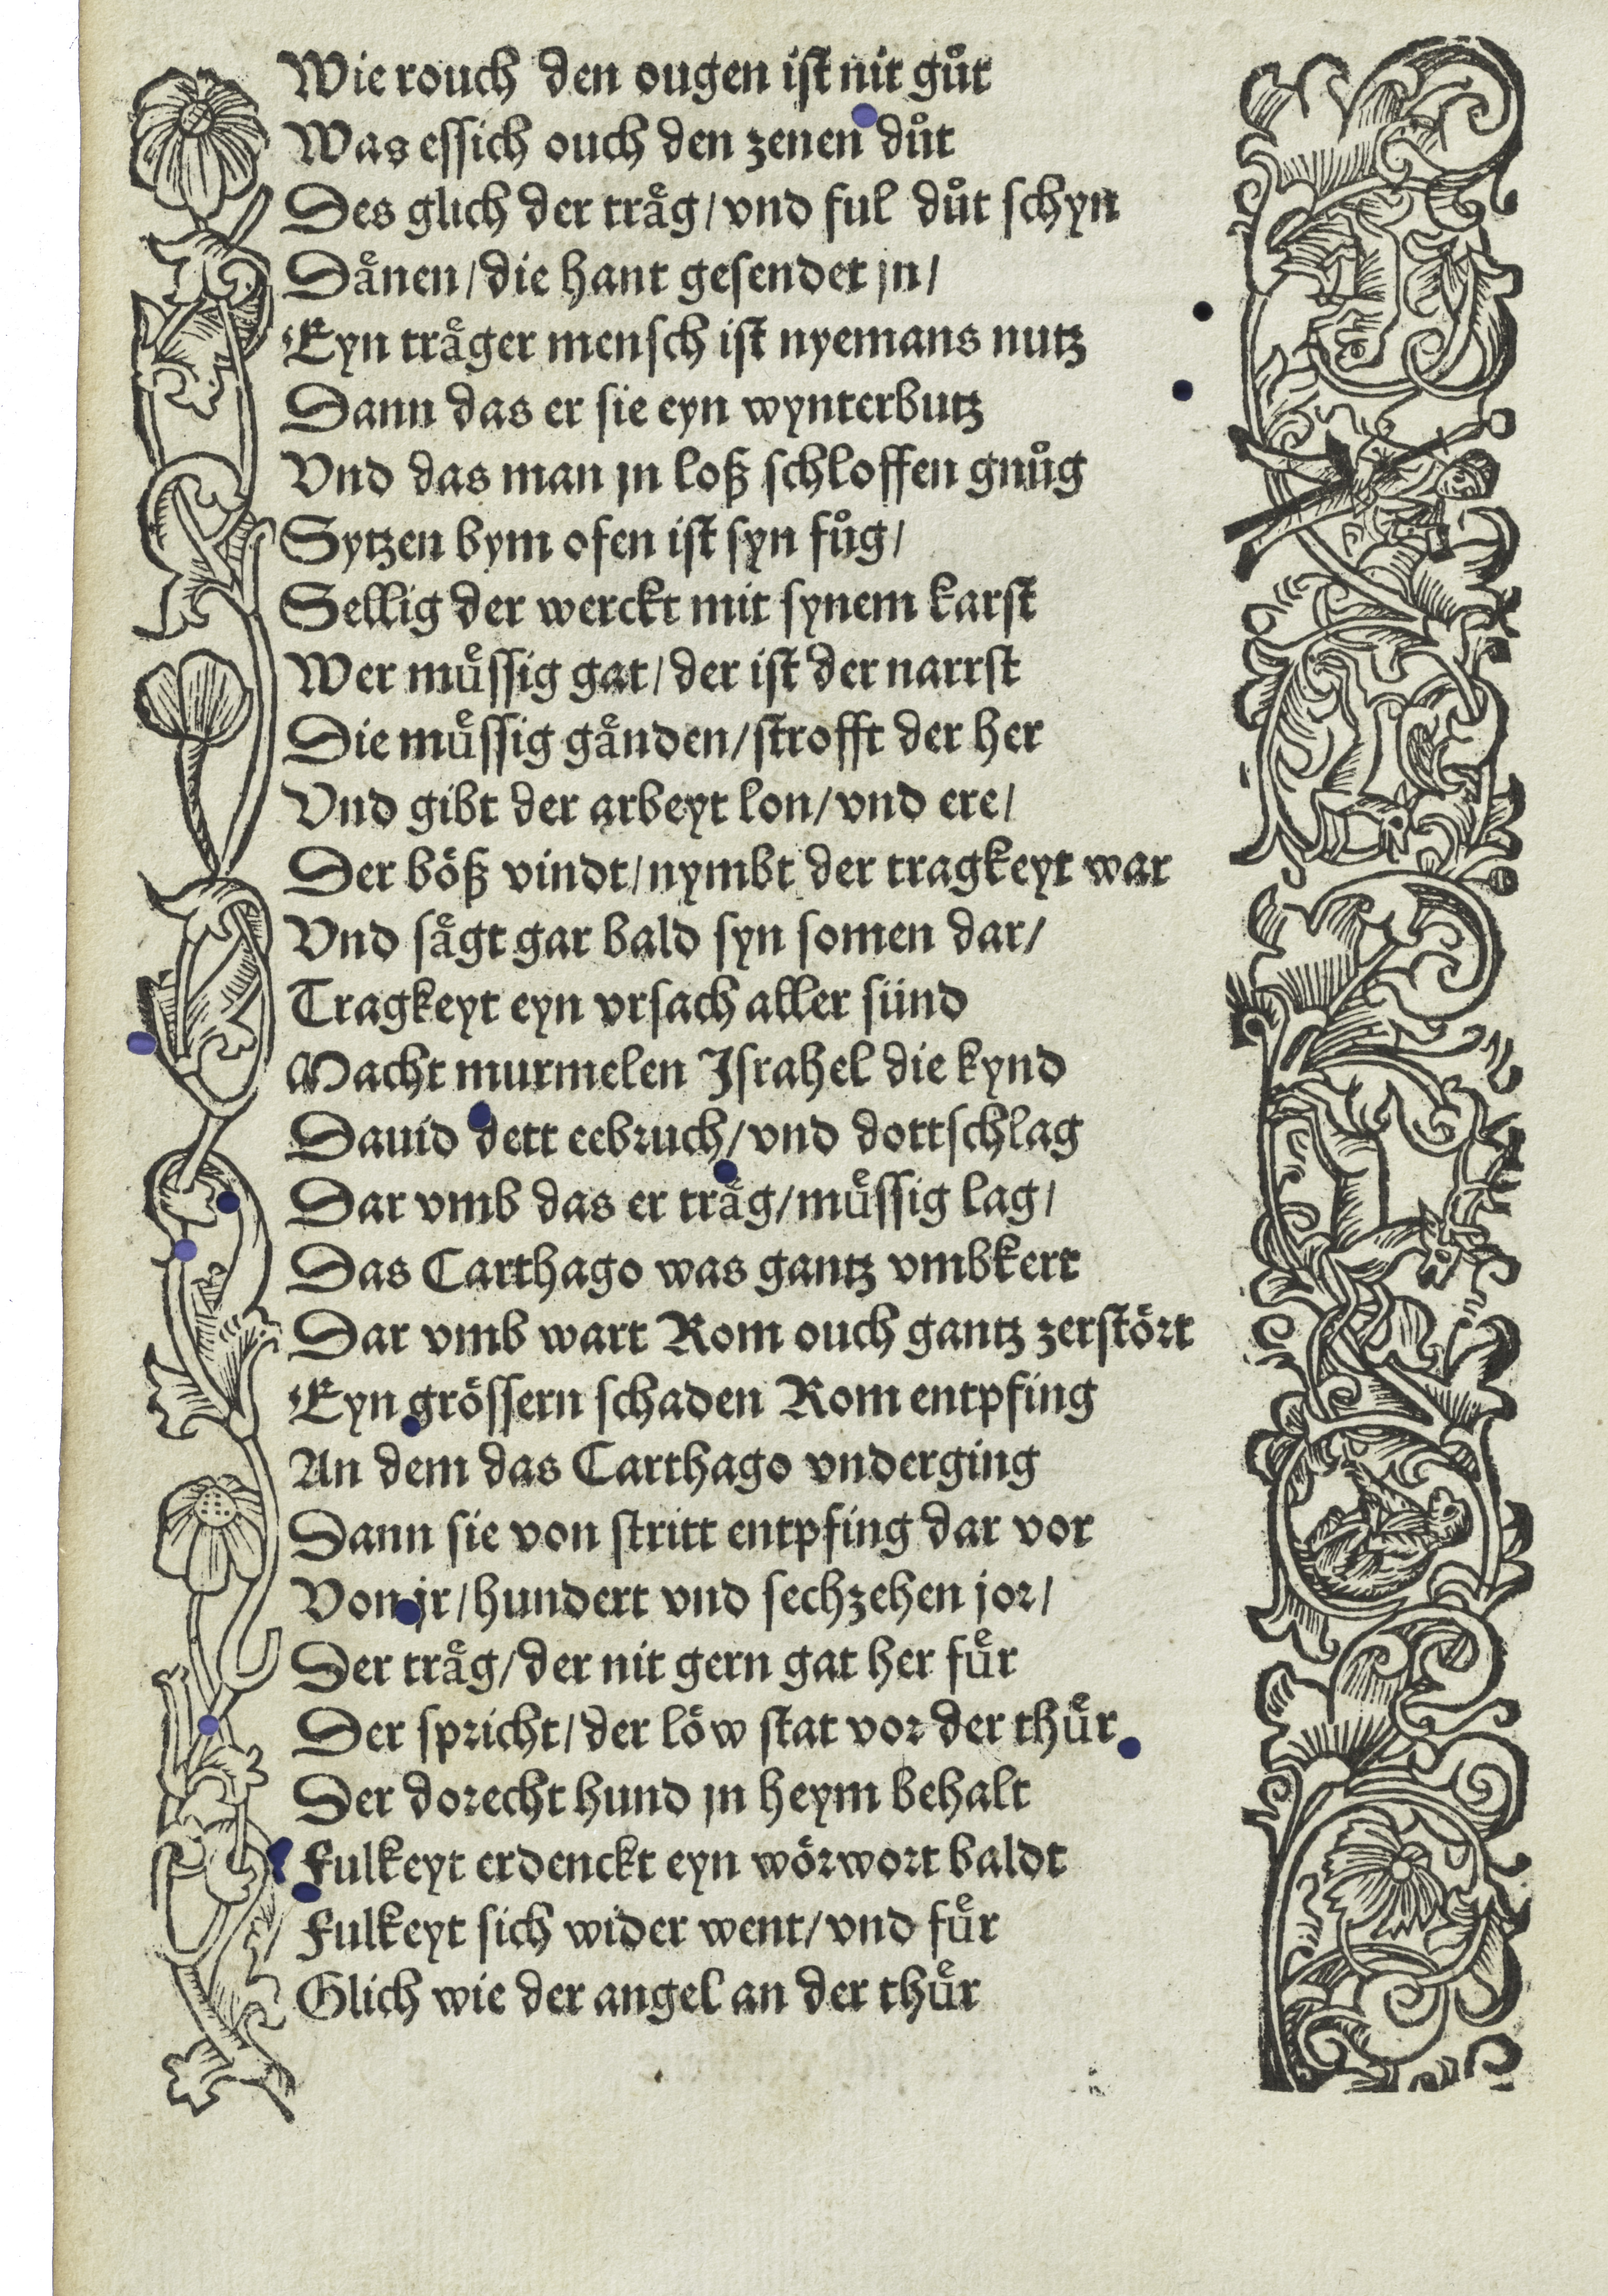 Wie rouch den ougen ist nit gůt
Was essich ouch den zenen důt
Des glich der trͤag/ vnd ful důt schyn
Dͤanen/ die hant gesendet jn/
Eyn trͤager mensch ist nyemans nutz
Dann das er sie eyn wynterbutz
Vnd das man jn loß schloffen gnůg
Sytzen bym ofen ist syn fůg/
Sellig der werckt mit synem karst
Wer muͤssig gat/ der ist der narrst
Die muͤssig gaͤnden/ strofft der her
Vnd gibt der arbeyt lon/ vnd ere/
Der böß vindt/ nymbt der tragkeyt war
Vnd saͤgt gar bald syn somen dar/
Tragkeyt eyn vrsach aller sünd
Macht murmelen Israhel die kynd
Dauid dett eebruch/ vnd dottschlag
Dar vmb das er traͤg/ muͤssig lag/
Das Carthago was gantz vmbkert
Dar vmb wart Rom ouch gantz zerstört
Eyn grössern schaden Rom entpfing
An dem das Carthago vnderging
Dann sie von stritt entpfing dar vor
Von jr/ hundert vnd sechzehen jor/
Der traͤg/ der nit gern gat her fuͤr
Der spricht/ der löw stat vor der thuͤr
Der dorecht hund jn heym behalt
Fulkeyt erdenckt eyn wörwort baldt
Fulkeyt sich wider went/ vnd fuͤr
Glich wie der angel an der thuͤr